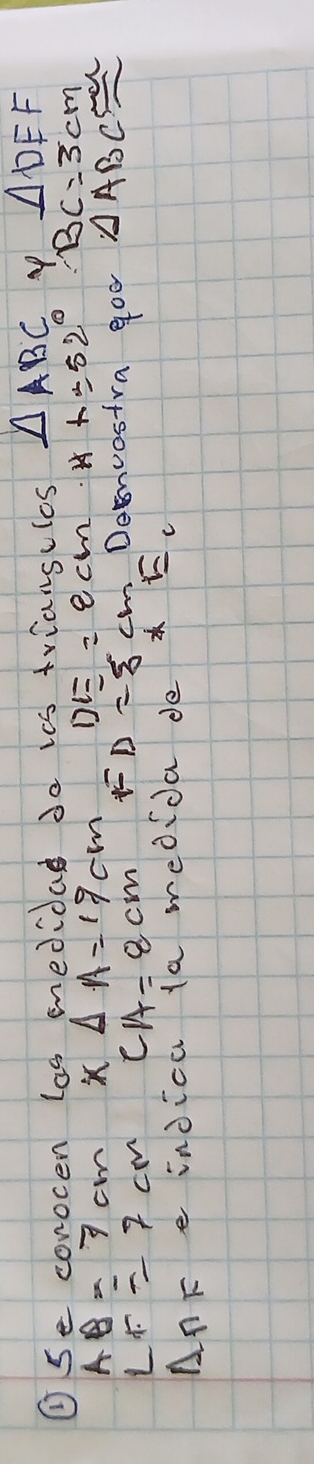 ① Se conocen las medidas de los triangulos Δ ABC y Δ DEF
AB = 7 cm A = 19 cm DE = 8 cm = 52° BC = 3 cm
= 7 cm CA = 8 cm FD = cm Demuestra que Δ ABC
e indica la medida de E.